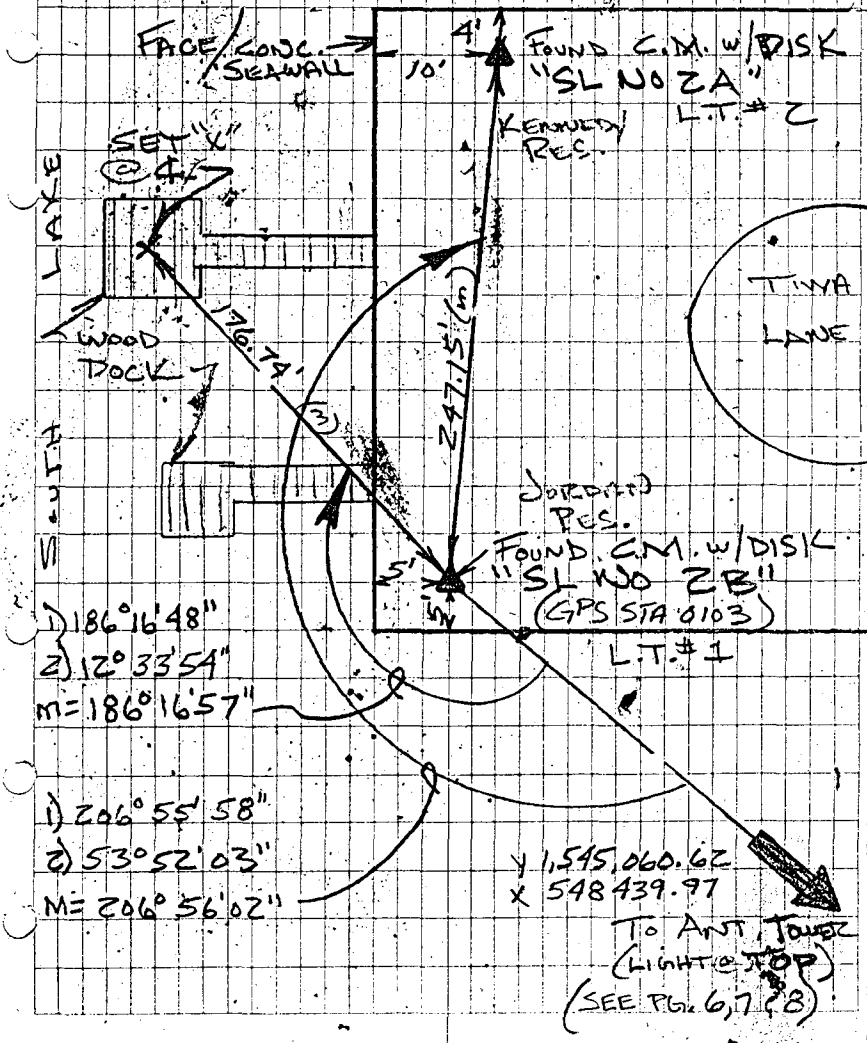 FACE/CONC.
SEAWALL
4'
10'
FOUND C.M. w/DISK
"SL NO 2A"
L.T. # 2
KENNEDY
RES.
SET "X"
@ 4
SOUTH LAKE
WOOD
DOCK
176.74'
(m)
247.15' (m)
TIWA
LANE
JORDAN
RES.
FOUND C.M. w/DISK
"SL NO 2B"
(GPS STA 0103)
L.T. # 1
5'
5'
1) 186° 16' 48"
2) 12° 33' 54"
M= 186° 16' 57"
1) 206° 55' 58"
2) 53° 52' 03"
M= 206° 56' 02"
Y 1,545,060.62
X 548439.97
TO ANT. TOWER
(LIGHT @ TOP)
(SEE PG. 6,7 & 8)